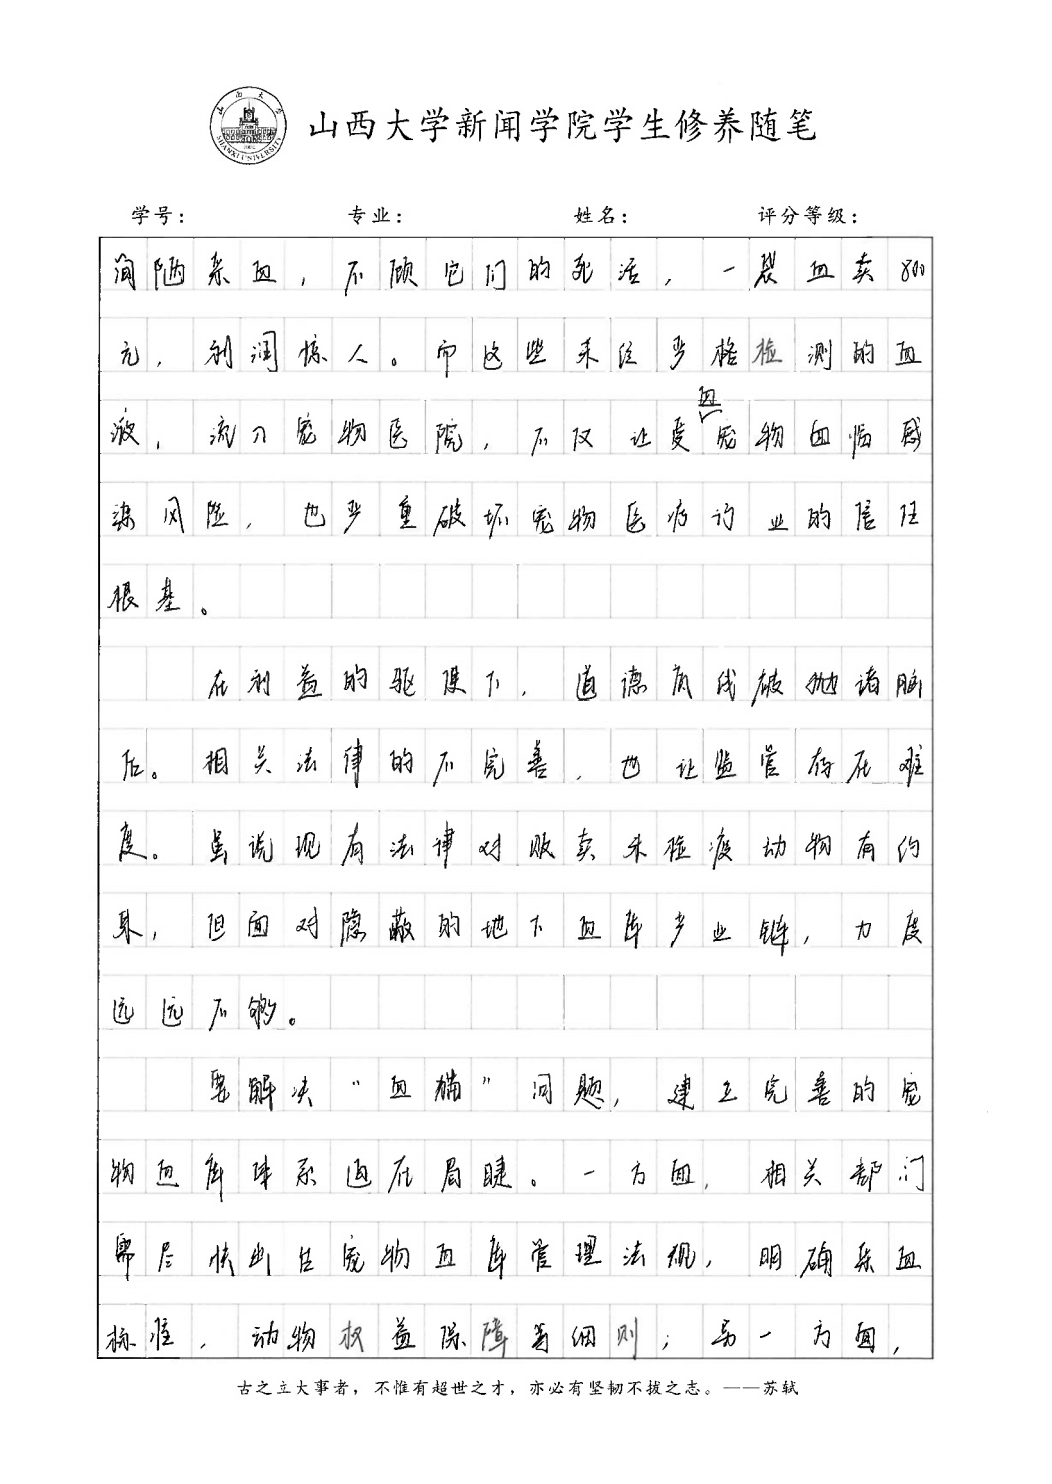 山西大学
SHANXI UNIVERSITY
1902
山西大学新闻学院学生修养随笔
学号： 专业： 姓名： 评分等级：
简陋采血，不顾它们的死活，一袋血卖800
元，利润惊人。而这些未经严格检测的血
液，流入宠物医院，不仅让受血宠物面临感
染风险，也严重破坏宠物医疗行业的信任
根基。
在利益的驱使下，道德底线被抛诸脑
后。相关法律的不完善，也让监管存在难
度。虽说现有法律对贩卖未检疫动物有约
束，但面对隐蔽的地下血库产业链，力度
远远不够。
要解决“血猫”问题，建立完善的宠
物血库体系迫在眉睫。一方面，相关部门
需尽快出台宠物血库管理法规，明确采血
标准，动物权益保障等细则；另一方面，
古之立大事者，不惟有超世之才，亦必有坚韧不拔之志。——苏轼